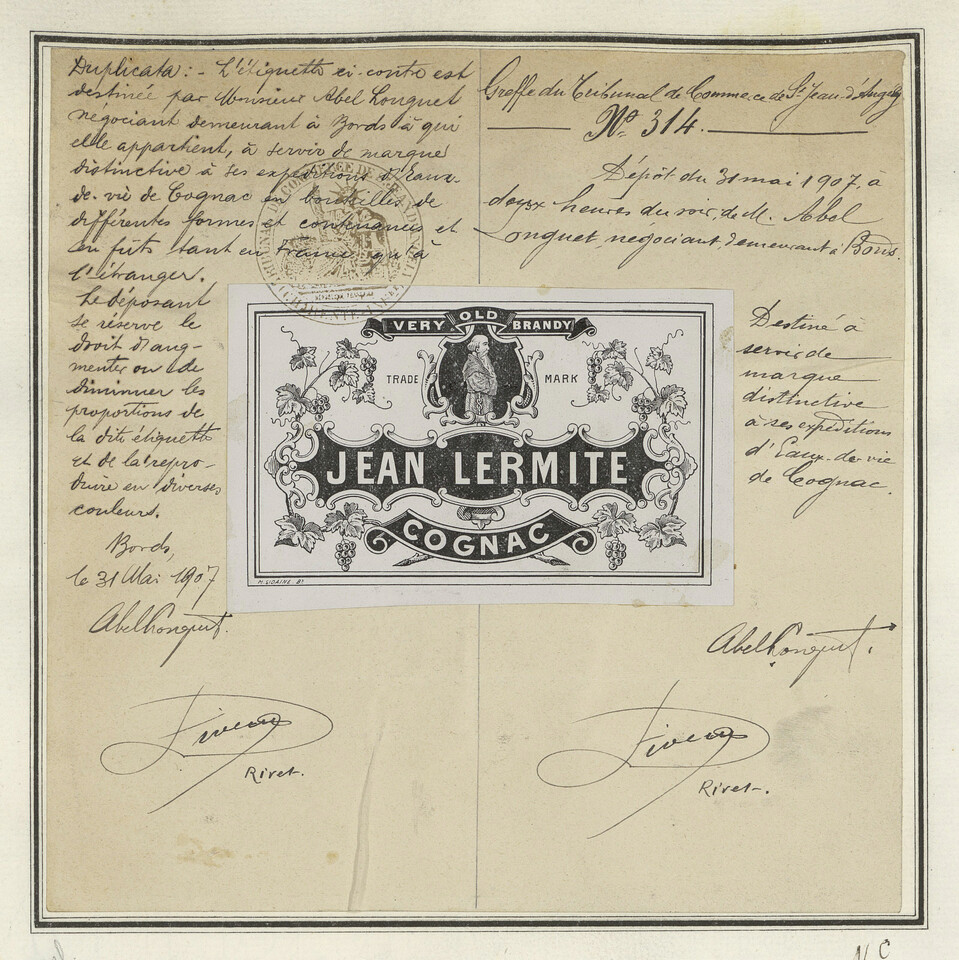 Duplicata : - L'étiquette ci-contre est
destinée par Monsieur Abel Longuet
négociant demeurant à Bords à qui
elle appartient, à servir de marque
distinctive à ses expéditions d'Eaux-
de-vie de Cognac en bouteilles de
différentes formes et contenances et
en fûts tant en France qu'à
l'étranger.
Le déposant
se réserve le
droit d'aug-
menter ou de
diminuer les
proportions de
la dite étiquette
et de la repro-
duire en diverses
couleurs.
Bords,
le 31 Mai 1907
Abel Longuet.
Rivet.
Greffe du Tribunal de Commerce de St Jean-d'Angély
No 314.
Dépôt du 31 mai 1907, à
heures du soir, de M. Abel
Longuet, négociant demeurant à Bords.
Destiné à
servir de
marque
distinctive
à ses expéditions
d'Eaux-de-vie
de Cognac.
VERY OLD BRANDY
TRADE MARK
JEAN LERMITE
COGNAC
Abel Longuet.
Rivet.
N C